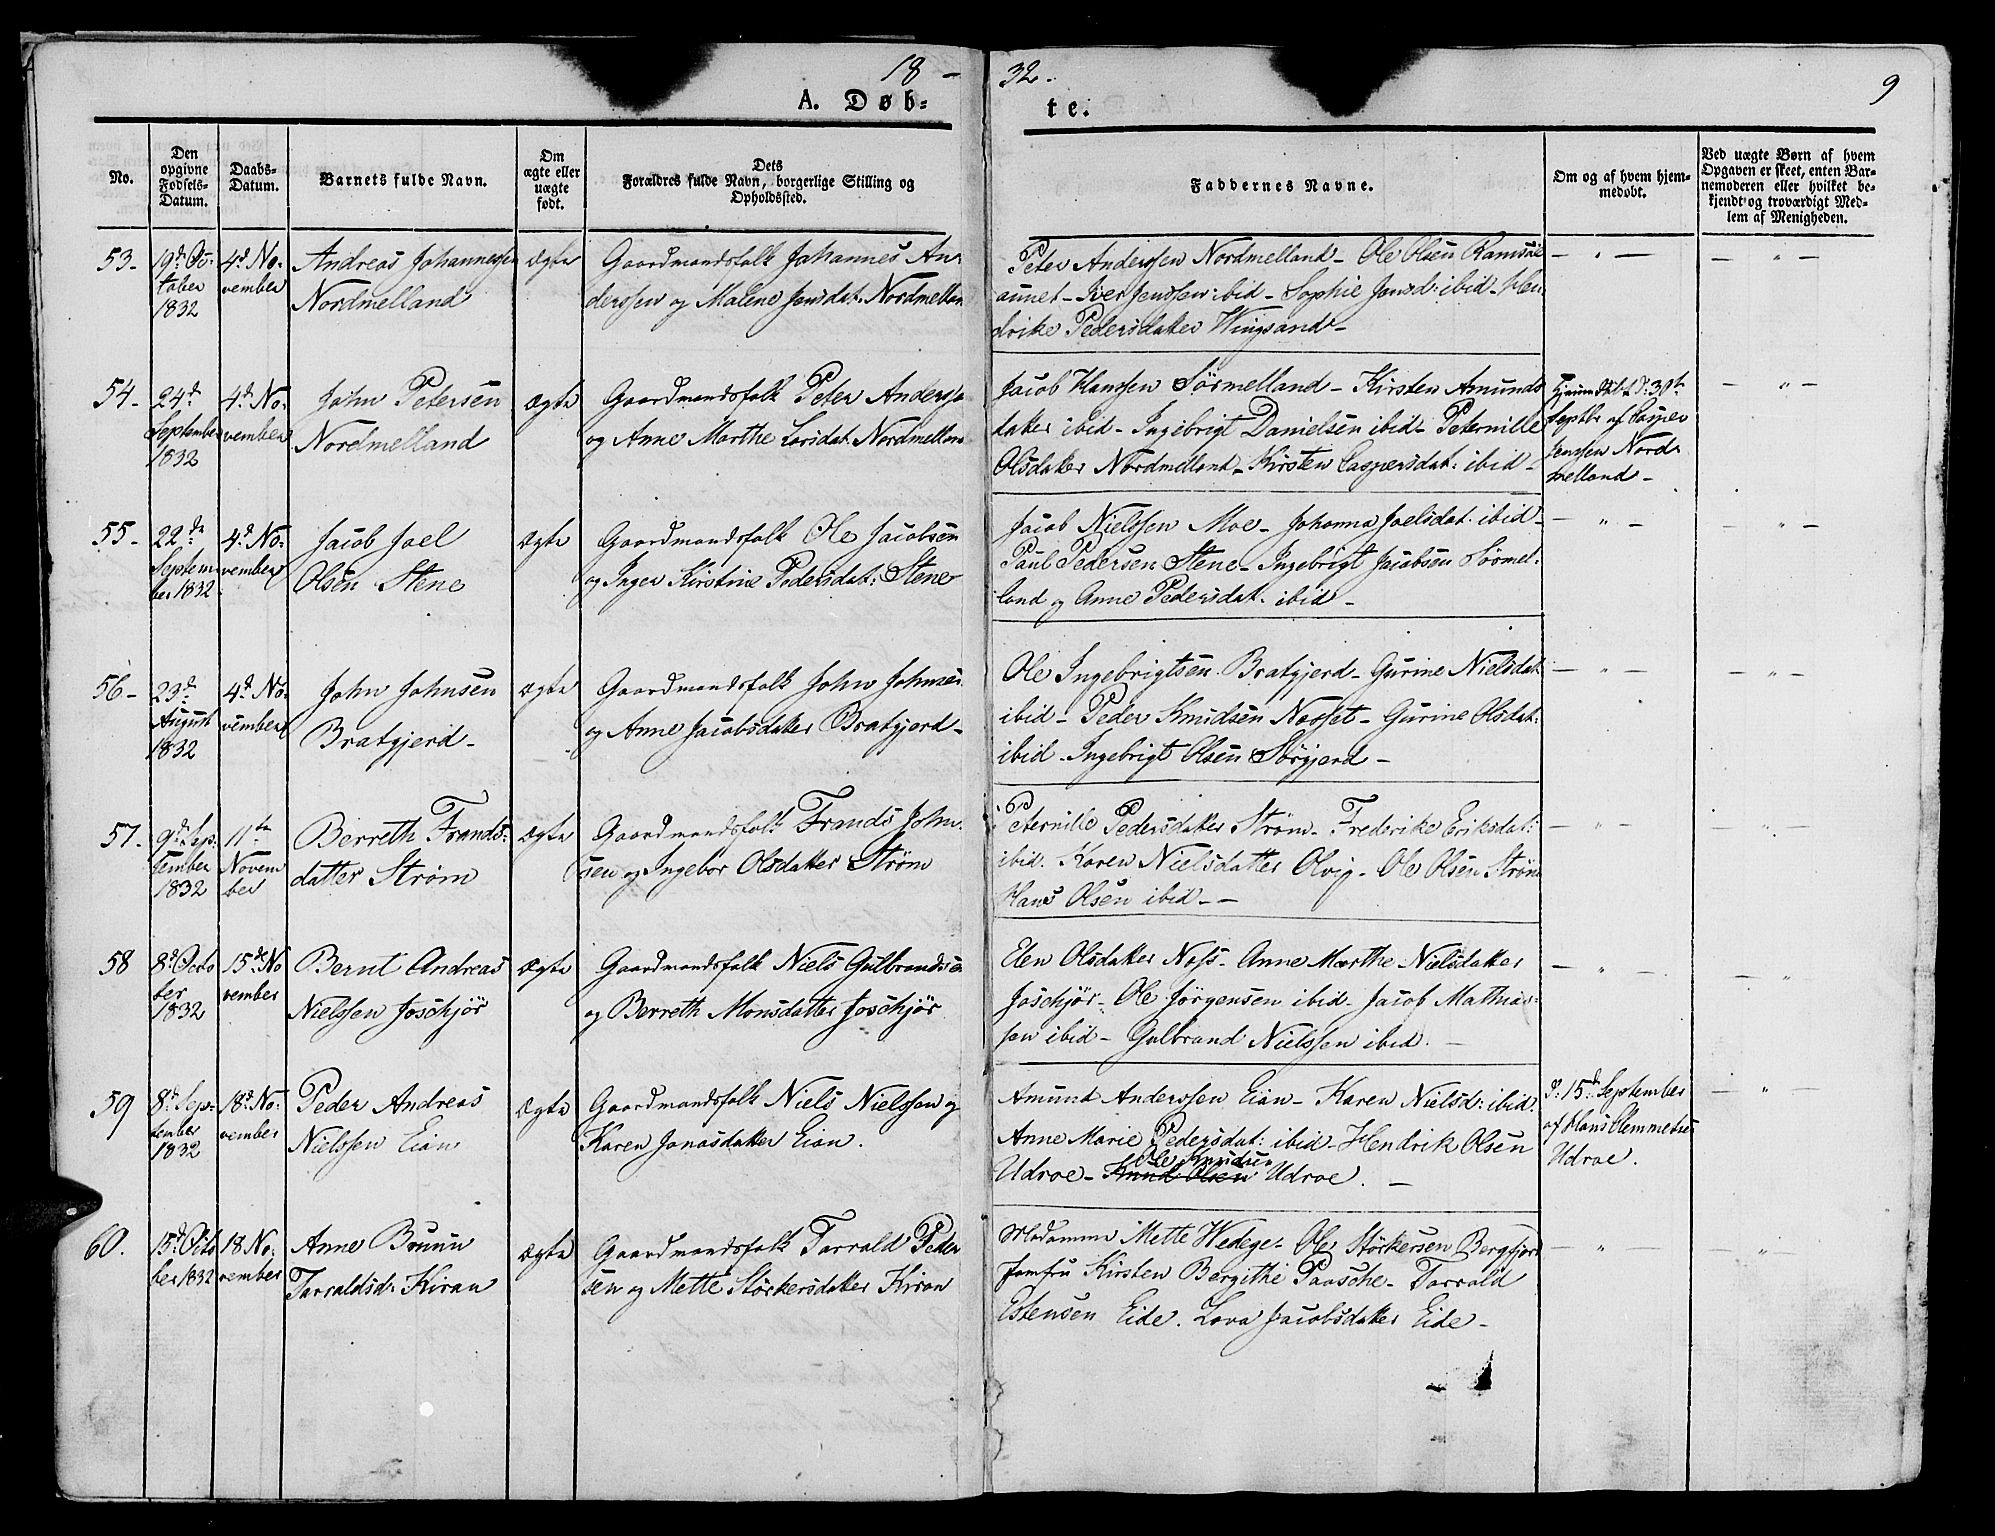 18 – 32.
9
A. Døb-te.
No.
Den opgivne Fødsels-Datum.
Daabs-Datum.
Barnets fulde Navn.
Om ægte eller uægte født.
Dets Forældres fulde Navn, borgerlige Stilling og Opholdssted.
Faddernes Navne.
Om og af hvem hjemmedøbt.
Ved uægte Børn af hvem Opgaven er skeet, enten Barnemoderen eller hvilket bekjendt og troværdigt Medlem af Menigheden.
53.
19d. October 1832
4d. November
Andreas Johannessen
Nordmelland
Ægte
Gaardmandsfolk Johannes An-
derssen og Malene Jensdat. Nordmelland
Peter Anderssen Nordmelland – Ole Olsen Ramsøe
aunet – Iver Jenssen ibid – Sophie Jensd: ibid – Hen
drike Pedersdatter Wingsand –
54.
24de September 1832
4d. November
John Petersen
Nordmelland
Ægte
Gaardmandsfolk Peter Anderse
og Anne Marthe Larsdat. Nordmelland
Jacob Hanssen Sörmelland – Kirsten Amunds
datter ibid – Ingebrigt Danielsen ibid – Peternille
Olsdatter Nordmelland – Kirsten Caspersdat: ibid –
Hjemmedøbt d: 30te
Septbr af Casper
Jenssen Nord-
melland –
55 –
22de September 1832
4d. November
Jacob Joel
Olsen Stene
Ægte
Gaardmandsfolk Ole Jacobsen
og Inger Kirstine Pedersdat: Stene
Jacob Nielssen Moe – Johanna Joelsdat. ibid –
Paul Pedersen Stene – Ingebrigt Jacobsen Sörmel-
land og Anne Pedersdat. ibid –
56 –
23de August 1832
4d. November
John Johnsen
Bratgjerd –
Ægte
Gaardmandsfolk John Johnsen
og Anne Jacobsdatter Bratgjerd –
Ole Ingebrigtsen Bratgjerd – Gurine Nielsdat:
ibid – Peder Knudsen Nesset – Gurine Olsdat:
ibid – Ingebrigt Olsen Sörgjerd –
57.
9d. September 1832
11te November
Berreth Frands-
datter Strøm
Ægte
Gaardmandsfolk Frands John-
sen og Ingebor Olsdatter Strøm
Peternille Pedersdatter Strøm – Frederike Eriksdat:
ibid. Karen Nielsdatter Olvig – Ole Olsen Strøm
Hans Olsen ibid – –
58
8d. October 1832
15de November
Bernt Andreas
Nielssen Joschjör
Ægte
Gaardmandsfolk Niels Gulbrandsen
og Berreth Monsdatter Joschjör
Elen Olsdatter Nofs – Anne Marthe Nielsdatter
Joschjör – Ole Jörgensen ibid – Jacob Mathias-
sen ibid – Gulbrand Nielssen ibid. –
59
8d. September 1832
18d. November
Peder Andreas
Nielssen Eian
Ægte
Gaardmandsfolk Niels Nielssen og
Karen Jonasdatter Eian.
Amund Anderssen Eian – Karen Nielsd: ibid.
Anne Marie Pedersdat: ibid – Hendrik Olsen
Ole Knudsen
Udroe – Knud Olsen Udroe. –
d: 15d. September
af Hans Clemmetsen
Udroe.
60.
15d. October 1832
18 November
Anne Bruun
Tarraldsd: Kiran
Ægte
Gaardmandsfolk Tarrald Peder
sen og Mette Störkersdatter Kiran
Madamme Mette Wedege – Ole Störkersen Bergfjor
Jomfru Kirsten Bergithe Paasche – Tarrald
Estensen Eide. Lova Jacobsdatter Eide –